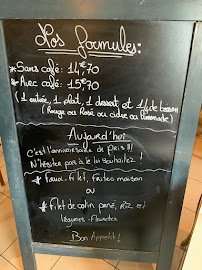 Nos formules:
* Sans café: 14,€70
* Avec café: 15,€70
(1 entrée, 1 plat, 1 dessert et 1/4 de boisson
(Rouge ou Rosé ou cidre ou limonade)
Aujourd'hui
C'est l'anniversaire de PARIS !!!
N'hésiter pas à le lui souhaitez !
* Faux-Filet, Frites maison
ou
* Filet de colin pané, Riz et
légumes -
Bon Appetit !